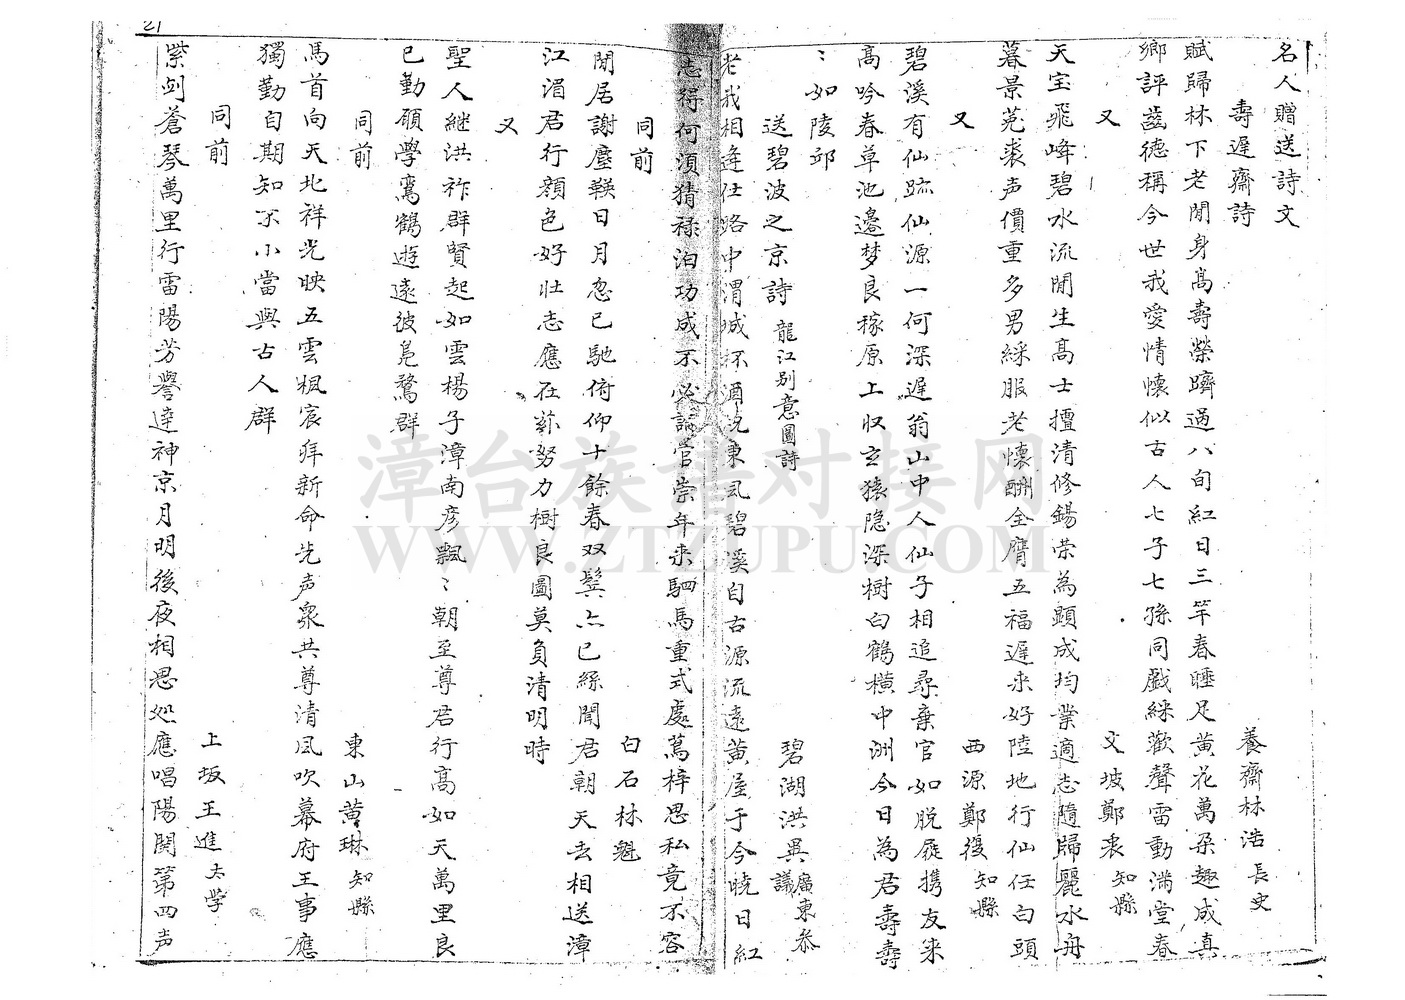 21
名人贈送詩文
壽遲齋詩　養齋林浩長史
賦歸林下老閒身高壽榮躋過八旬紅日三竿春睡足黃花萬朶趣成真
鄉評齒德稱今世我愛情懷似古人七子七孫同戲綵歡聲雷動滿堂春
又　文坡鄭裘知縣
天宝飛峰碧水流閒生高士擅清修錫荣為顕成均業適志隨歸麗水舟
暮景菟裘声價重多男綵服老懷酬全膺五福遲来好陸地行仙任白頭
又　西源鄭復知縣
碧溪有仙跡仙源一何深遲翁山中人仙子相追尋棄官如脱屣携友来
高吟春草池邊梦良稼原上収玄猿隐深樹白鶴橫中洲今日為君壽壽
：如陵邱
送碧波之京詩　龍江別意圖詩　碧湖洪異廣東叅議
老我相逢仕路中渭城杯酒沇東风碧溪自古源流遠黄屋于今曉日紅
志得何須猜禄泊功成不必論官崇年来駟馬重式處蔦梓思私竟不容
同前　白石林魁
閒居謝塵鞅日月忽已馳俯仰十餘春双鬂亦已絲聞君朝天去相送漳
江湄君行顔色好壮志應在茲努力樹良圖莫負清明時
又
聖人継洪祚群賢起如雲楊子漳南彦飄：朝至尊君行高如天萬里良
已勤願學鸞鶴遊遠彼鳧鶩群
同前　東山黄琳知縣
馬首向天北祥光映五雲楓宸拜新命先声衆共尊清风吹幕府王事應
獨勤自期知不小當與古人群
同前　上坂王進太学
紫剑蒼琴萬里行雷陽芳譽達神京月明後夜相思処應唱陽関第四声
漳台族譜对接网
WWW.ZTZUPU.COM